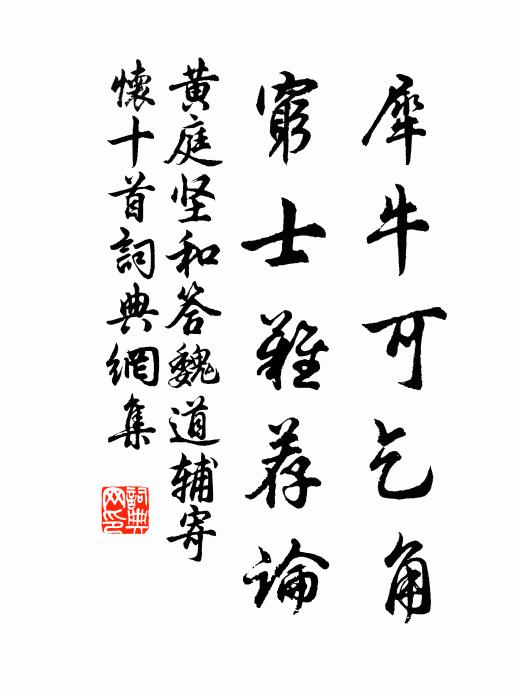 犀牛可乞角
穷士难荐论
黄庭坚和答魏道辅寄
怀十首詞典網集
詞典
网印